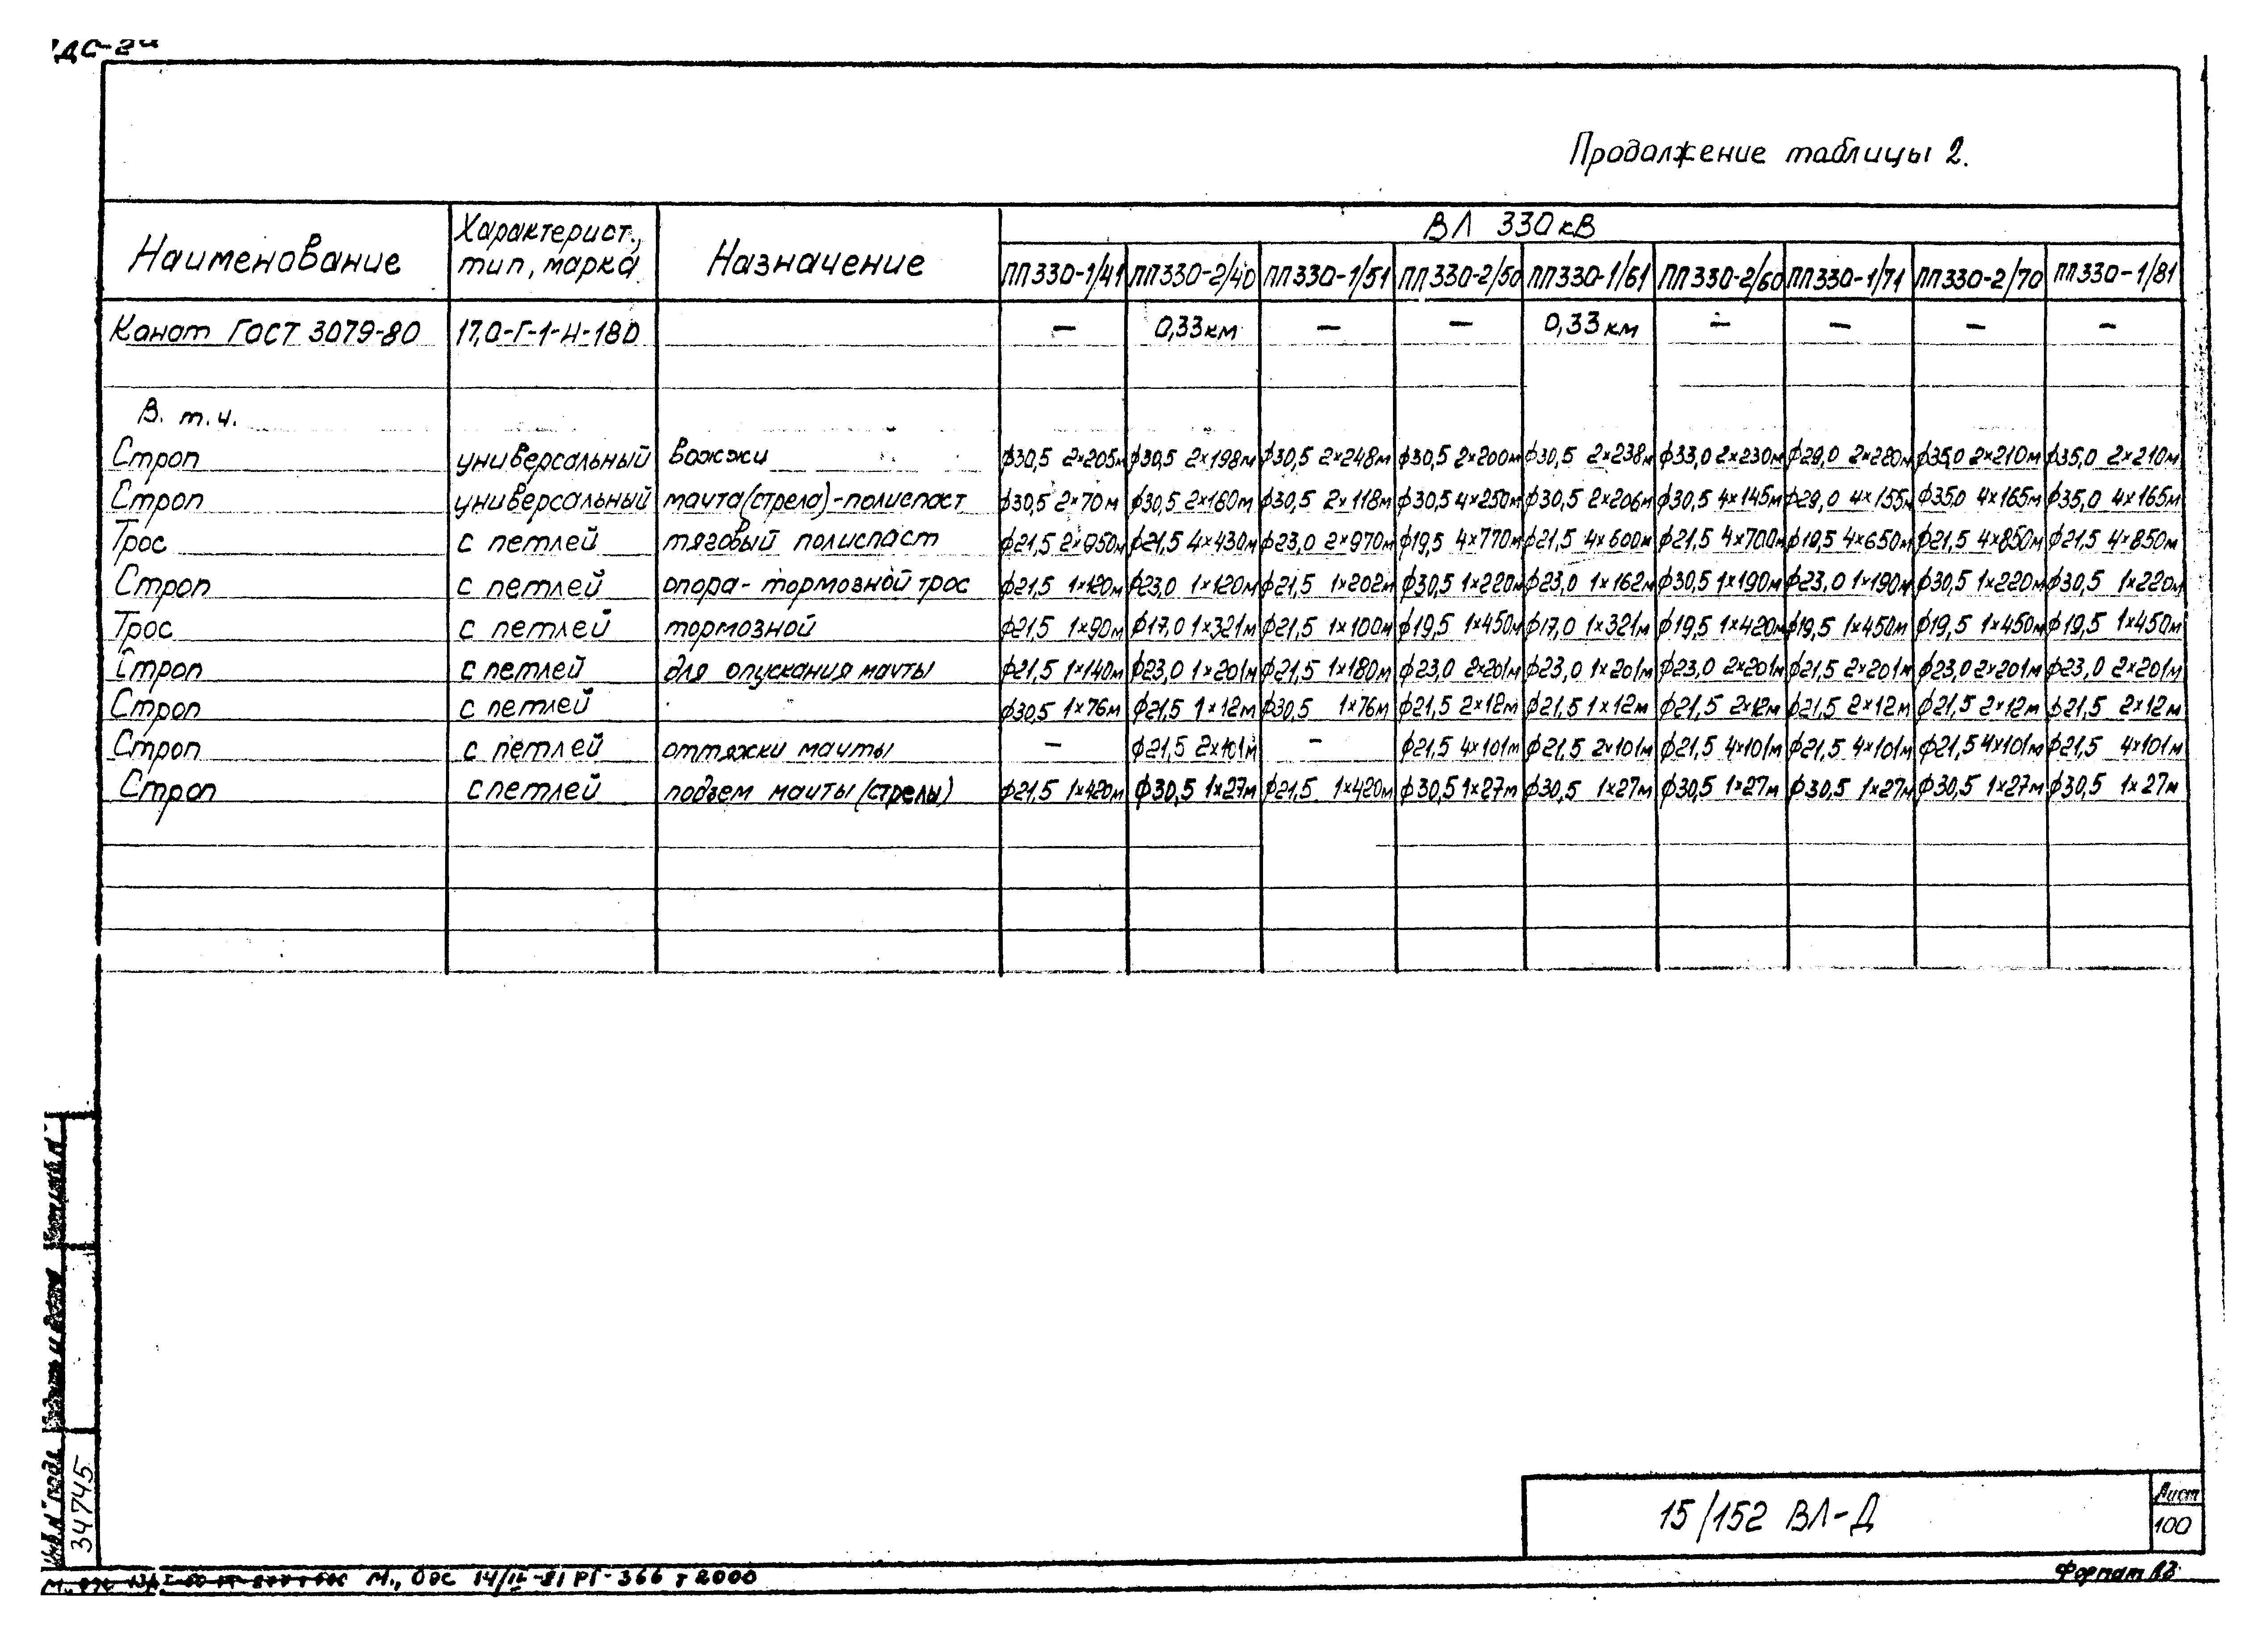 Продолжение таблицы 2.
Наименование Характерист., тип, марка Назначение ВЛ 330кВ
ПП330-1/41 ПП330-2/40 ПП330-1/51 ПП330-2/50 ПП330-1/61 ПП330-2/60 ПП330-1/71 ПП330-2/70 ПП330-1/81
Канат ГОСТ 3079-80 17,0-Г-1-Н-180 — 0,33км — — 0,33км — — — —
В. т.ч.
Строп универсальный вожжи ф30,5 2×205м ф30,5 2×198м ф30,5 2×248м ф30,5 2×200м ф30,5 2×238м ф33,0 2×230м ф29,0 2×280м ф35,0 2×210м ф35,0 2×210м
Строп универсальный мачта(стрела)-полиспаст ф30,5 2×70м ф30,5 2×160м ф30,5 2×118м ф30,5 4×250м ф30,5 2×206м ф30,5 4×145м ф29,0 4×155м ф35,0 4×165м ф35,0 4×165м
Трос с петлей тяговый полиспаст ф21,5 2×950м ф21,5 4×430м ф23,0 2×970м ф19,5 4×770м ф21,5 4×600м ф21,5 4×700м ф19,5 4×650м ф21,5 4×850м ф21,5 4×850м
Строп с петлей опора-тормозной трос ф21,5 1×120м ф23,0 1×120м ф21,5 1×202м ф30,5 1×220м ф23,0 1×162м ф30,5 1×190м ф23,0 1×190м ф30,5 1×220м ф30,5 1×220м
Трос с петлей тормозной ф21,5 1×90м ф17,0 1×321м ф21,5 1×100м ф19,5 1×450м ф17,0 1×321м ф19,5 1×420м ф19,5 1×450м ф19,5 1×450м ф19,5 1×450м
Строп с петлей для опускания мачты ф21,5 1×140м ф23,0 1×201м ф21,5 1×180м ф23,0 2×201м ф23,0 1×201м ф23,0 2×201м ф21,5 2×201м ф23,0 2×201м ф23,0 2×201м
Строп с петлей ф30,5 1×76м ф21,5 1×12м ф30,5 1×76м ф21,5 2×12м ф21,5 1×12м ф21,5 2×12м ф21,5 2×12м ф21,5 2×12м ф21,5 2×12м
Строп с петлей оттяжки мачты — ф21,5 2×101м — ф21,5 4×101м ф21,5 2×101м ф21,5 4×101м ф21,5 4×101м ф21,5 4×101м ф21,5 4×101м
Строп с петлей подъем мачты (стрелы) ф21,5 1×420м ф30,5 1×27м ф21,5 1×420м ф30,5 1×27м ф30,5 1×27м ф30,5 1×27м ф30,5 1×27м ф30,5 1×27м ф30,5 1×27м
Инв.№ подл.
34745
15/152 ВЛ-Д
Лист
100
М., ОЭС 14/II-81 РГ-366 т 2000
Формат